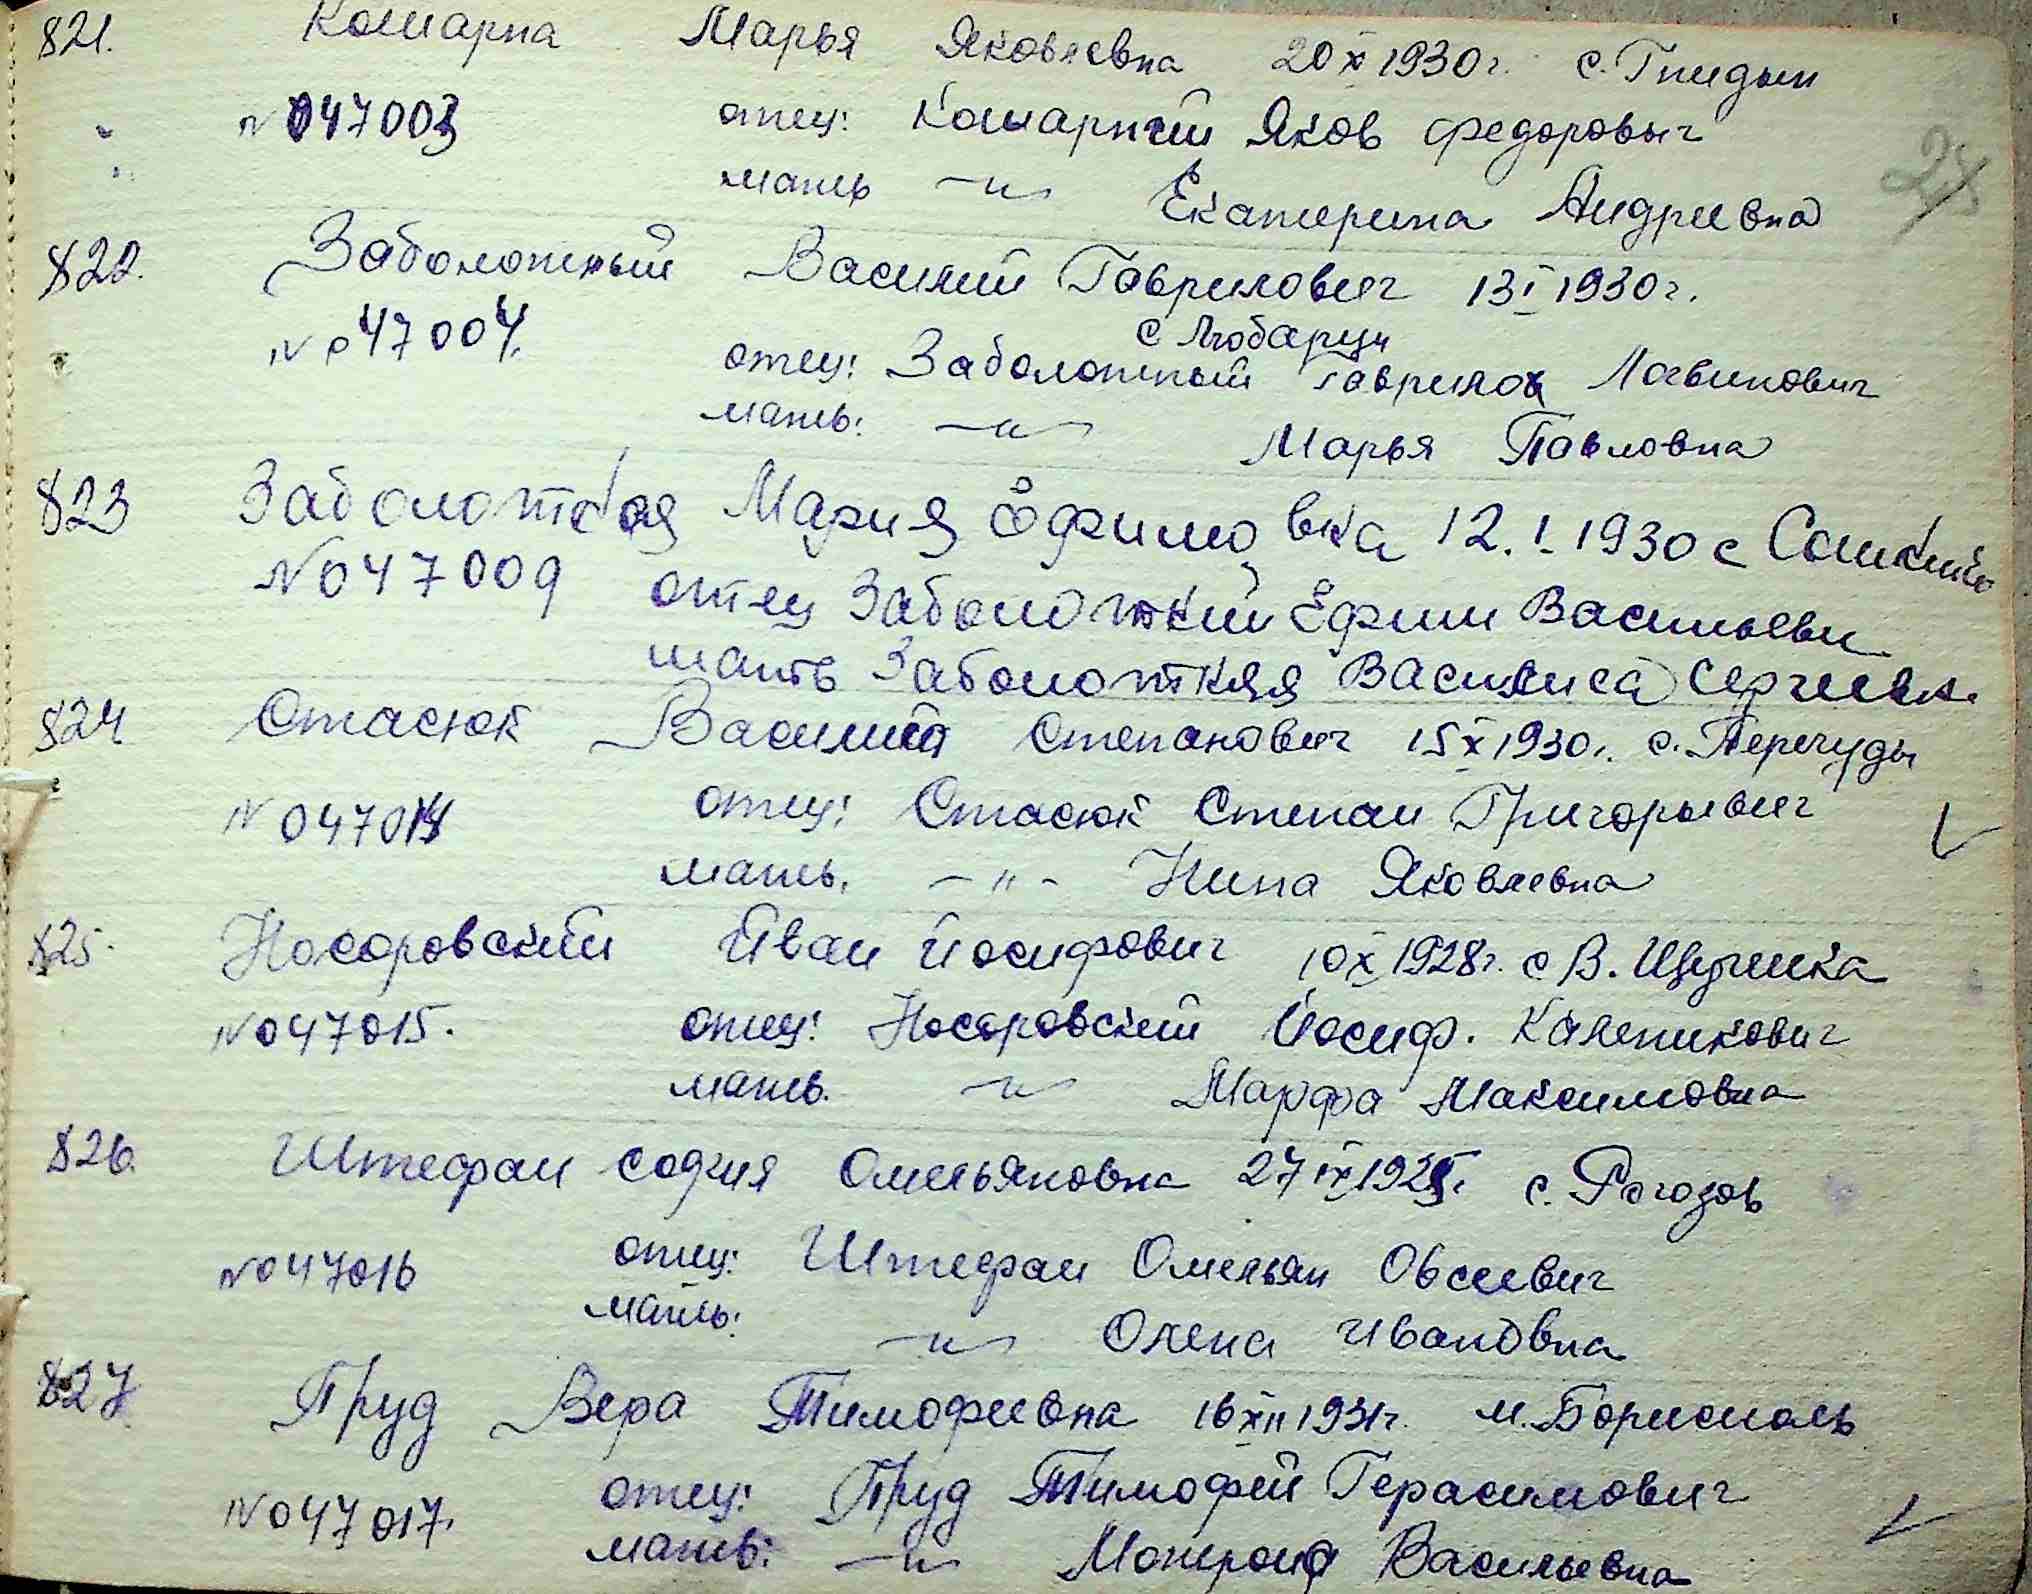 821. Комарна Марья Яковлевна 20 X 1930 г. с. Гнидын
N 047003 отец: Комарный Яков Федоровыч
мать —"— Екатерина Андреевна
822. Заболотный Василий Гаврилович 13 I 1930 г.
с Любарцы
N 047004. отец: Заболотный Логвинович
мать: —"— Марья Павловна
823 Заболотная Мария Ефимовна 12.I.1930 с
N 047009 отец Ефим Васильеви
мать Василиса Сергеевн.
824 Стасюк Василий Степанович 15 X 1930 г. с.
N отец: Стасюк Степан Григорьевич
мать. —"— Нина Яковлевна
825. Носоровский Иван Йосифович 10 X 1928 г. с В.
N 047015. отец: Носоровский Йосиф. Каленикович
мать. —"— Марфа Максимовна
826. Штефан София Омельяновна 27 IX с. Рогозов
N 047016 отец: Штефан Омельян Овсеевич
мать: —"— Олена Ивановна
827 Пруд Вера Тимофеевна 16 XII 1931 г. м. Борисполь
N 047017. отец: Пруд Тимофей Герасимович
мать: —"— Васильевна